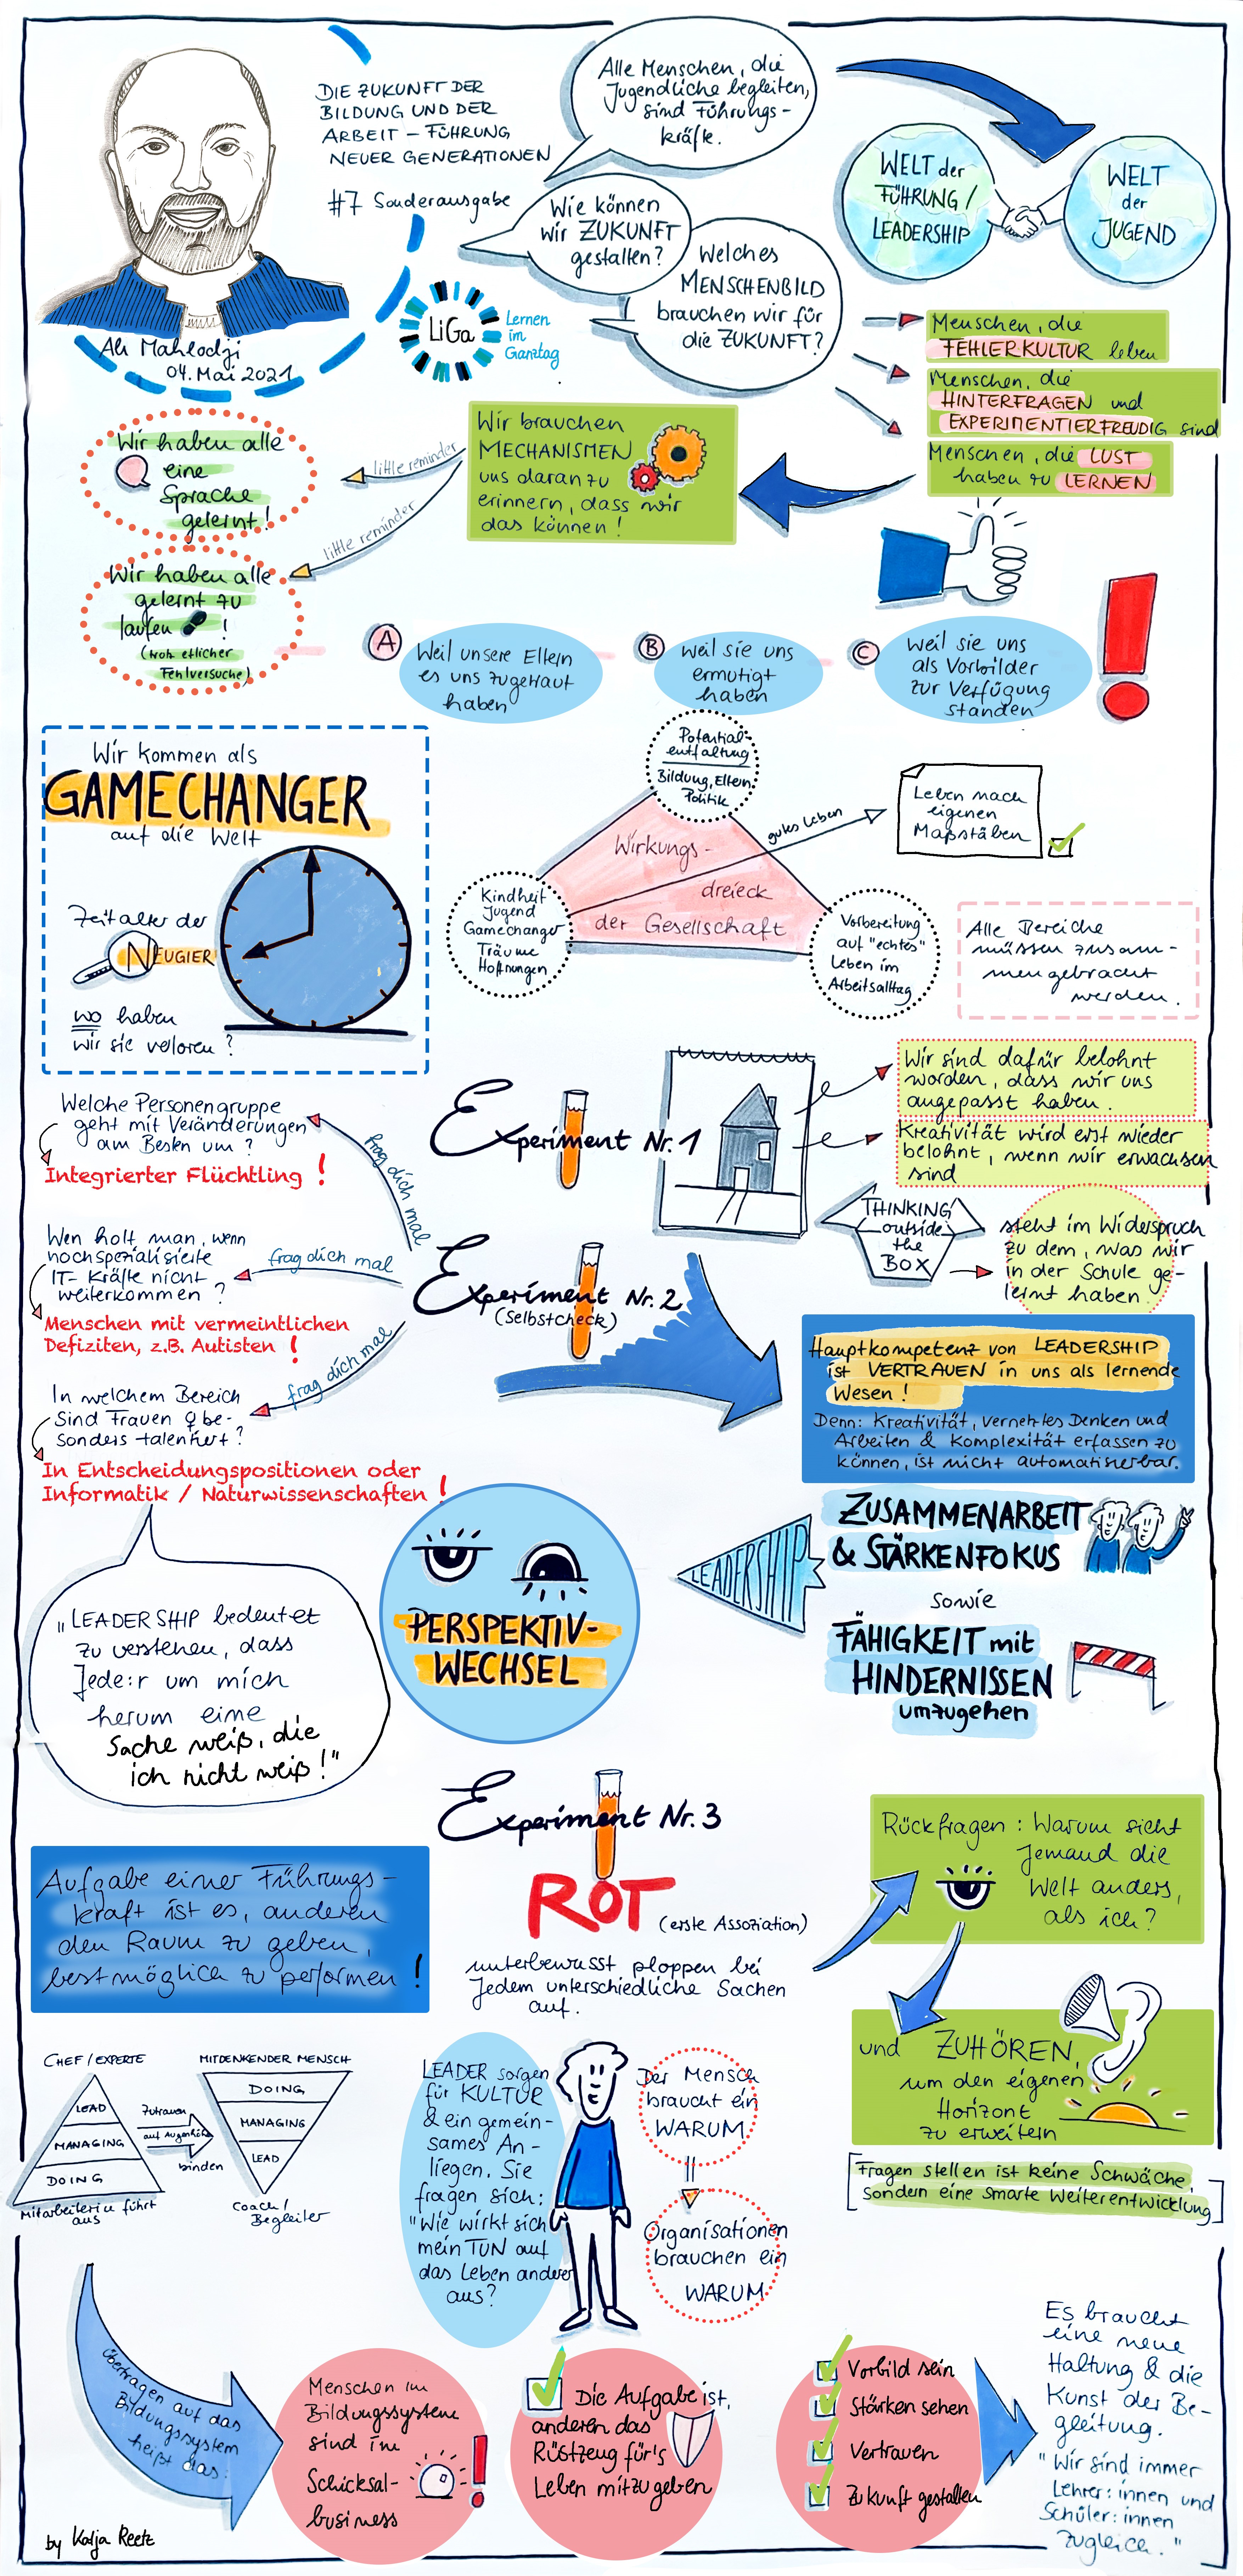 DIE ZUKUNFT DER
BILDUNG UND DER
ARBEIT – FÜHRUNG
NEUER GENERATIONEN
#7 Sonderausgabe
Ali Mahlodji
04. Mai 2021
LiGa
Lernen
im
Ganztag
Alle Menschen, die
Jugendliche begleiten,
sind Führungs-
kräfte.
Wie können
wir ZUKUNFT
gestalten?
Welches
MENSCHENBILD
brauchen wir für
die ZUKUNFT?
WELT der
FÜHRUNG /
LEADERSHIP
WELT
der
JUGEND
Menschen, die
FEHLERKULTUR leben
Menschen, die
HINTERFRAGEN und
EXPERIMENTIERFREUDIG sind
Menschen, die LUST
haben zu LERNEN
Wir brauchen
MECHANISMEN
uns daran zu
erinnern, dass wir
das können!
little reminder
little reminder
Wir haben alle
eine
Sprache
gelernt!
Wir haben alle
gelernt zu
laufen !
(trotz etlicher
Fehlversuche)
A
Weil unsere Eltern
es uns zugetraut
haben
B
weil sie uns
ermutigt
haben
C
weil sie uns
als Vorbilder
zur Verfügung
standen
Wir kommen als
GAMECHANGER
auf die Welt
Zeitalter der
NEUGIER
wo haben
wir sie verloren?
Potential-
entfaltung
Bildung, Eltern,
Politik
Wirkungs-
dreieck
der Gesellschaft
Kindheit
Jugend
Gamechanger
Träume
Hoffnungen
Vorbereitung
auf "echtes"
Leben im
Arbeitsalltag
gutes Leben
Leben nach
eigenen
Maßstäben
Alle Bereiche
müssen zusam-
mengebracht
werden.
Experiment Nr. 1
Wir sind dafür belohnt
worden, dass wir uns
angepasst haben.
Kreativität wird erst wieder
belohnt, wenn wir erwachsen
sind
THINKING
outside
the
BOX
steht im Widerspruch
zu dem, was wir
in der Schule ge-
lernt haben.
Welche Personengruppe
geht mit Veränderungen
am Besten um?
Integrierter Flüchtling !
frag dich mal
Wen holt man, wenn
hochspezialisierte
IT-Kräfte nicht
weiterkommen?
Menschen mit vermeintlichen
Defiziten, z.B. Autisten !
frag dich mal
In welchem Bereich
sind Frauen ♀ be-
sonders talentiert?
In Entscheidungspositionen oder
Informatik / Naturwissenschaften !
frag dich mal
Experiment Nr. 2
(Selbstcheck)
Hauptkompetenz von LEADERSHIP
ist VERTRAUEN in uns als lernende
Wesen!
Denn: Kreativität, vernetztes Denken und
Arbeiten & Komplexität erfassen zu
können, ist nicht automatisierbar.
"LEADERSHIP bedeutet
zu verstehen, dass
Jede:r um mich
herum eine
Sache weiß, die
ich nicht weiß!"
PERSPEKTIV-
WECHSEL
LEADERSHIP
ZUSAMMENARBEIT
& STÄRKENFOKUS
sowie
FÄHIGKEIT mit
HINDERNISSEN
umzugehen
Experiment Nr. 3
ROT
(erste Assoziation)
unterbewusst ploppen bei
Jedem unterschiedliche Sachen
auf.
Rückfragen: Warum sieht
Jemand die
Welt anders,
als ich?
und ZUHÖREN,
um den eigenen
Horizont
zu erweitern
[Fragen stellen ist keine Schwäche,
sondern eine smarte Weiterentwicklung]
Aufgabe einer Führungs-
kraft ist es, anderen
den Raum zu geben,
bestmöglich zu performen !
CHEF / EXPERTE
LEAD
MANAGING
DOING
Mitarbeiter:in führt
aus
Zutrauen
auf Augenhöhe
binden
MITDENKENDER MENSCH
DOING
MANAGING
LEAD
Coach /
Begleiter
LEADER sorgen
für KULTUR
& ein gemein-
sames An-
liegen. Sie
fragen sich:
"Wie wirkt sich
mein TUN auf
das Leben anderer
aus?
Der Mensch
braucht ein
WARUM
Organisationen
brauchen ein
WARUM
übertragen auf das
Bildungssystem
heißt das:
Menschen im
Bildungssystem
sind im
Schicksal-
business
Die Aufgabe ist,
anderen das
Rüstzeug für's
Leben mitzugeben
Vorbild sein
Stärken sehen
Vertrauen
Zukunft gestalten
Es braucht
eine neue
Haltung & die
Kunst der Be-
gleitung.
"Wir sind immer
Lehrer:innen und
Schüler:innen
zugleich."
by Katja Reetz